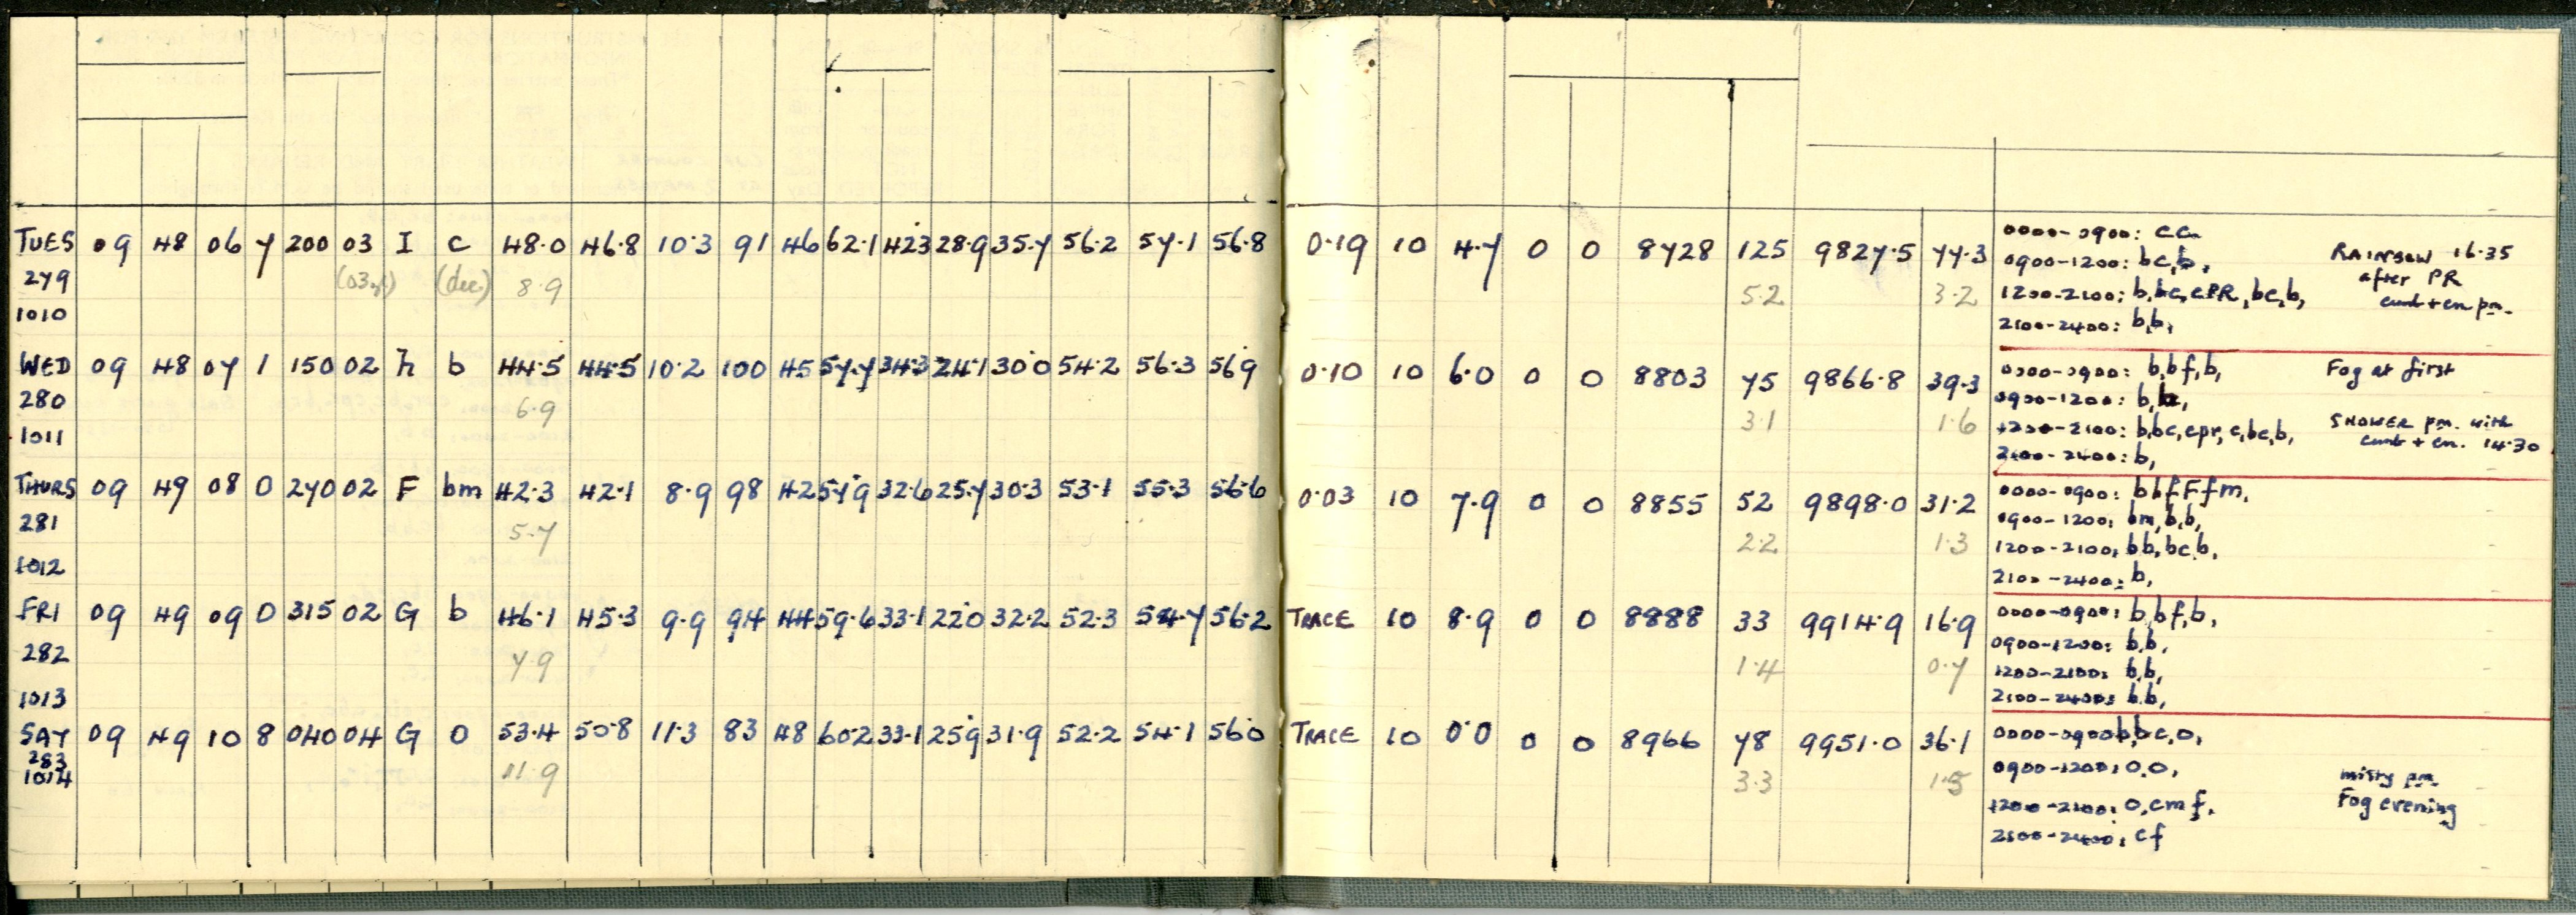 TUES 09 48 06 7 200 03 I c 48.0 46.8 10.3 91 46 62.1 42.3 28.9 35.7 56.2 57.1 56.8 0.19 10 4.7 0 0 8728 125 9827.5 77.3 0000-0900: cc,
0900-1200: bc,b, RAINBOW 16.35
279 (dec) 8.9 5.2 3.2 1200-2100: b,bc,cPR,bc,b, after PR
cumb + cn pm.
1010 2100-2400: b,b,
WED 09 48 07 1 150 02 h b 44.5 44.5 10.2 100 45 57.7 34.3 24.1 30.0 54.2 56.3 56.9 0.10 10 6.0 0 0 8803 75 9866.8 39.3 0000-0900: b,bf,b, Fog at first
280 6.9 3.1 1.6 0900-1200: b,b,
1011 1200-2100: b,bc,cpr,c,bc,b, SHOWER pm. with
2100-2400: b, cumb + cn. 14.30
THURS 09 49 08 0 270 02 F bm 42.3 42.1 8.9 98 42 57.9 32.6 25.7 30.3 53.1 55.3 56.6 0.03 10 7.9 0 0 8855 52 9898.0 31.2 0000-0900: bbfFfm,
281 5.7 2.2 1.3 0900-1200: bm,b,b,
1200-2100: bb,bc,b,
1012 2100-2400: b,
FRI 09 49 09 0 315 02 G b 46.1 45.3 9.9 94 44 59.6 33.1 22.0 32.2 52.3 54.7 56.2 TRACE 10 8.9 0 0 8888 33 9914.9 16.9 0000-0900: b,bf,b,
282 7.9 1.4 0.7 0900-1200: b,b,
1200-2100: b,b,
1013 2100-2400: b.b,
SAT 09 49 10 8 040 04 G 0 53.4 50.8 11.3 83 48 60.2 33.1 25.9 31.9 52.2 54.1 56.0 TRACE 10 0.0 0 0 8966 78 9951.0 36.1 0000-0900 b,bc,o,
283 11.9 3.3 1.5 0900-1200: o,o, misty pm
1014 1200-2100: o,cmf, Fog evening
2100-2400: cf